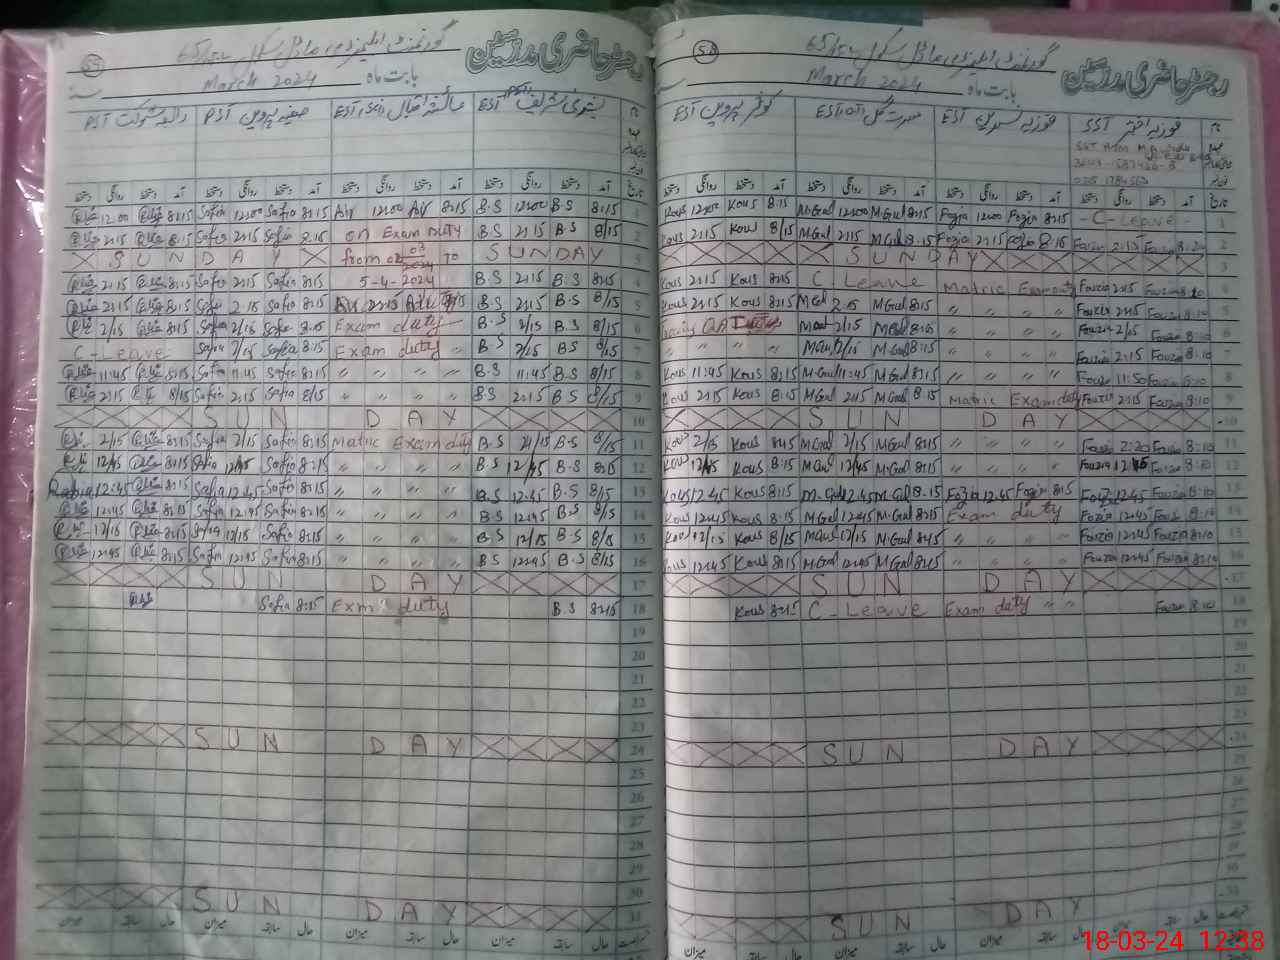 رجسٹر حاضری مدرسین گورنمنٹ ایلیمنٹری ماڈل سکول 65/5-L 58
بابت ماہ March 2024
فوزیہ اختر SST فوزیہ نسرین EST مسرت گل EST کوثر پروین EST
تاریخ آمد دستخط روانگی دستخط آمد دستخط روانگی دستخط آمد دستخط روانگی دستخط آمد دستخط روانگی دستخط
1 - C-Leave - 8:15 Fozia 12:00 Fozia 8:15 M.Gul 12:00 M.Gul 8:15 Kous 12:00 Kous
2 8:20 Fouzia Fouzia 8:15 Fozia 2:15 Fozia 8:15 M.Gul 2:15 M.Gul 8/15 Kous 2:15 Kous
3 SUNDAY
4 8:10 Fouzia 2:15 Fouzia Matric Exam duty C Leave 8:15 Kous 2:15 Kous
5 8:10 Fouzia 2:15 Fouzia " " " " 8:15 M.Gul 2:15 M.Gul 8:15 Kous 2:15 Kous
6 8:10 Fouzia 2/15 Fouzia " " " " 8:15 M.Gul 2/15 M.Gul
7 8:10 Fouzia 2:15 Fouzia " " " " 8:15 M.Gul 2/15 M.Gul " " " "
8 8:10 Fouzia 11:50 Fouzia " " " " 8:15 M.Gul 11:45 M.Gul 8:15 Kous 11:45 Kous
9 8:10 Fouzia 2:15 Fouzia Matric Exam duty 8:15 M.Gul 2:15 M.Gul 8:15 Kous 2:15 Kous
10 SUN DAY
11 8:10 Fouzia 2:20 Fouzia " " " " 8:15 M.Gul 2/15 M.Gul 8:15 Kous 2/15 Kous
12 8:10 Fouzia 12:45 Fouzia " " " " 8:15 M.Gul 12/45 M.Gul 8:15 Kous 12/45 Kous
13 8:10 Fouzia 12:45 Fouzia 8:15 Fozia 12:45 Fozia 8:15 M.Gul 12:45 M.Gul 8:15 Kous 12:45 Kous
14 8:10 Fouzia 12:45 Fozia Exam duty 8:15 M.Gul 12:45 M.Gul 8:15 Kous 12:45 Kous
15 8:10 Fouzia 12:45 Fouzia " " " " 8:15 M.Gul 12/15 M.Gul 8/15 Kous 12/15 Kous
16 8:10 Fouzia 12:45 Fouzia " " " " 8:15 M.Gul 12:45 M.Gul 8:15 Kous 12:45 Kous
17 SUN DAY
18 8:10 Fouzia Exam duty " " C-Leave 8:15 Kous
19
20
21
22
23
24 SUN DAY
25
26
27
28
29
30
31 SUN DAY
رجسٹر حاضری مدرسین گورنمنٹ ایلیمنٹری ماڈل سکول 65/5-L 55
بابت ماہ March 2024
بشریٰ شریف EST عائشہ اقبال EST صفیہ پروین PST رابعہ شوکت PST
تاریخ آمد دستخط روانگی دستخط آمد دستخط روانگی دستخط آمد دستخط روانگی دستخط آمد دستخط روانگی دستخط
1 8:15 B.S 12:00 B.S 8:15 12:00 8:15 Safia 12:00 Safia 8:15 رابعہ 12:00 رابعہ
2 8/15 B.S 2:15 B.S on Exam Duty 8:15 Safia 2:15 Safia 8:15 رابعہ 2:15 رابعہ
3 SUNDAY from 02 03 2024 to SUNDAY
4 8:15 B.S 2:15 B.S 5-4-2024 8:15 Safia 2:15 Safia 8:15 رابعہ 2:15 رابعہ
5 8/15 B.S 2:15 B.S 2:15 8:15 Safia 2:15 Safia 8:15 رابعہ 2:15 رابعہ
6 8/15 B.S 2/15 B.S Exam duty 8:15 Safia 2/15 Safia 8:15 رابعہ 2/15 رابعہ
7 8/15 B.S 2/15 B.S Exam duty " 8:15 Safia 2/15 Safia C-Leave
8 8/15 B.S 11:45 B.S " " " " 8:15 Safia 11:45 Safia 8:15 رابعہ 11:45 رابعہ
9 8/15 B.S 2:15 B.S " " " " 8/15 Safia 2:15 Safia 8/15 رابعہ 2:15 رابعہ
10 SUN DAY
11 8/15 B.S 2/15 B.S Matric Exam duty 8:15 Safia 2/15 Safia 8:15 رابعہ 2/15 رابعہ
12 8:15 B.S 12/45 B.S " " " " 8:15 Safia 12:45 Safia 8:15 رابعہ 12/45 رابعہ
13 8/15 B.S 12:45 B.S " " " " 8:15 Safia 12:45 Safia 8:15 رابعہ 12:45 Rabia
14 8/15 B.S 12:45 B.S " " " " 8:15 Safia 12:45 Safia 8:15 رابعہ 12:45 رابعہ
15 8/15 B.S 12/15 B.S " " " " 8:15 Safia 12/15 Safia 8:15 رابعہ 12/15 رابعہ
16 8/15 B.S 12:45 B.S " " " " 8:15 Safia 12:45 Safia 8:15 رابعہ 12:45 رابعہ
17 SUN DAY
18 8:15 B.S Exam duty 8:15 Safia رابعہ
19
20
21
22
23
24 SUN DAY
25
26
27
28
29
30
31 SUN DAY
حال سابقہ میزان حال سابقہ میزان حال سابقہ میزان حال سابقہ میزان
18-03-24 12:38